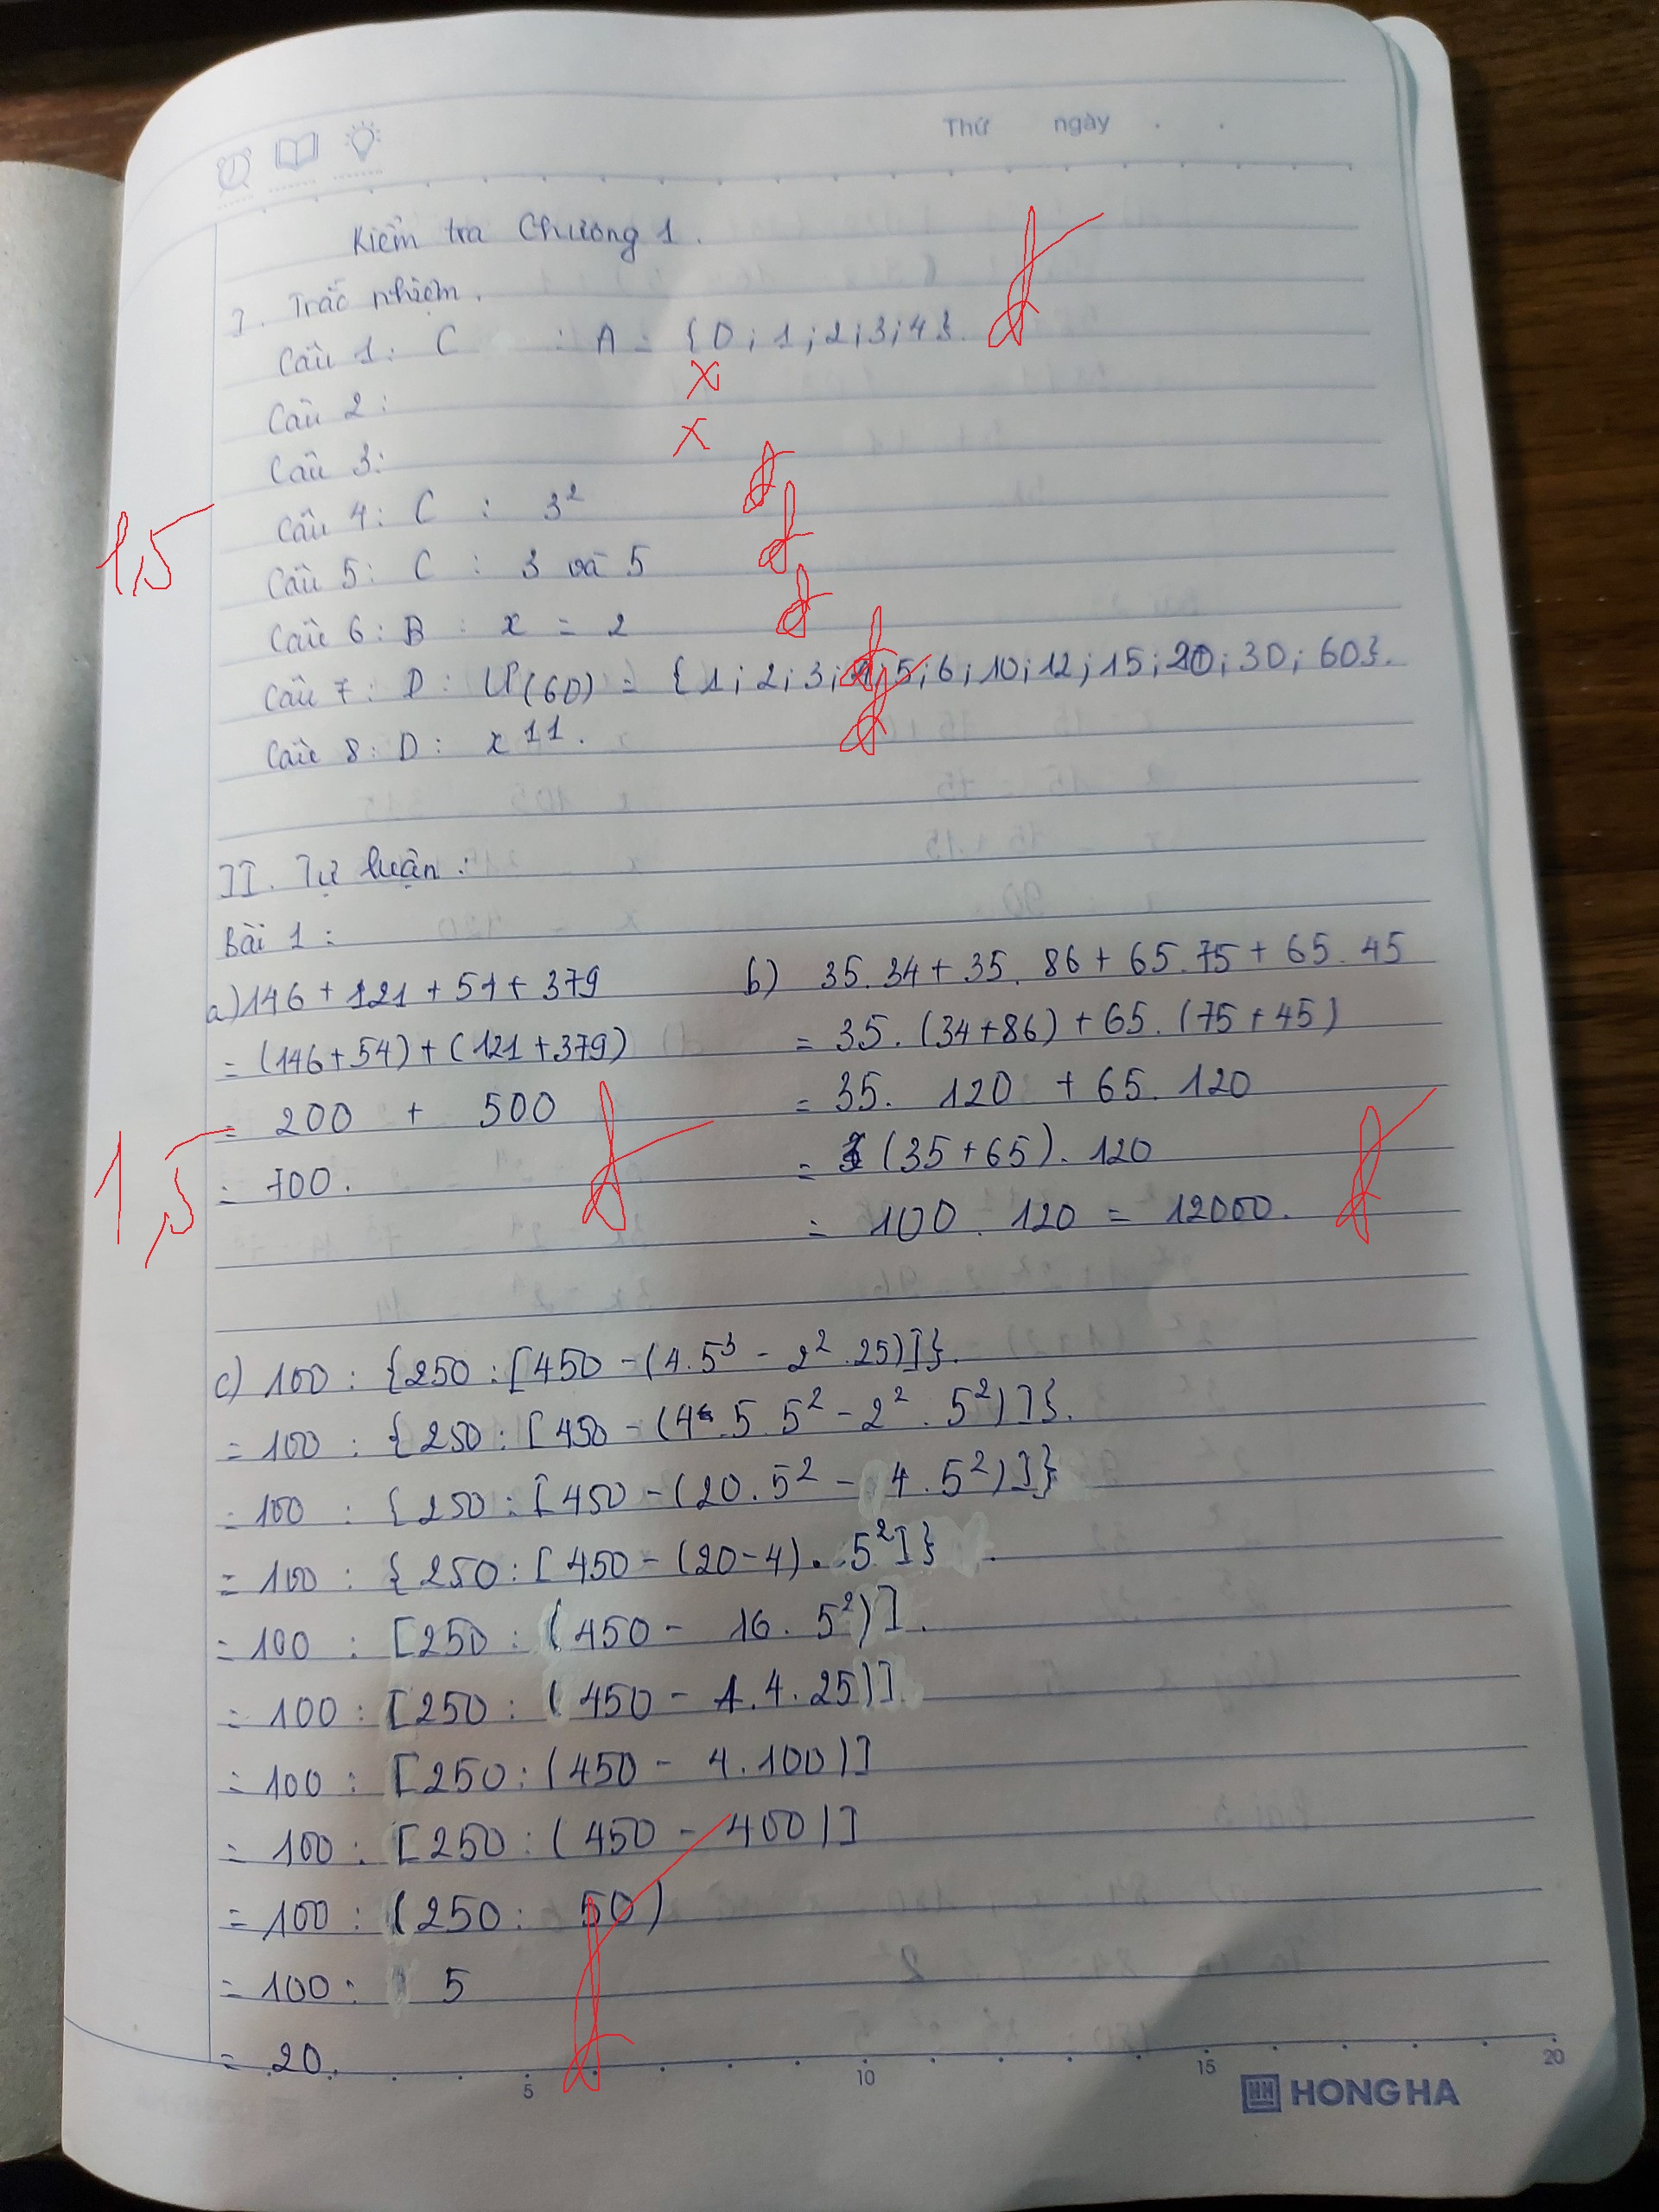 Thứ ngày
Kiểm tra Chương 1.
I. Trắc nhiệm.
Câu 1: C : A = {0; 1; 2; 3; 4}. đ
Câu 2: x
Câu 3: x
Câu 4: C : 3² đ
1,5
Câu 5: C : 3 và 5 đ
Câu 6: B : x = 2 đ
Câu 7: D: Ư(60) = {1; 2; 3; 4; 5; 6; 10; 12; 15; 20; 30; 60}. đ
Câu 8: D: x 11. đ
II. Tự luận:
Bài 1:
a) 146 + 121 + 54 + 379
= (146 + 54) + (121 + 379)
= 200 + 500
= 700. đ
1,5
b) 35.34 + 35. 86 + 65.75 + 65.45
= 35. (34 + 86) + 65. (75 + 45)
= 35. 120 + 65. 120
= (35 + 65). 120
= 100. 120 = 12000. đ
c) 100 : {250 : [450 - (4.5³ - 2².25)]}.
= 100 : {250 : [450 - (4.5.5² - 2².5²)]}.
= 100 : {250 : [450 - (20.5² - 4.5²)]}
= 100 : {250 : [450 - (20-4). 5²]}
= 100 : [250 : (450 - 16. 5²)].
= 100 : [250 : (450 - 4.4.25)]
= 100 : [250 : (450 - 4.100)]
= 100 : [250 : (450 - 400)]
= 100 : (250 : 50)
= 100 : 5
= 20. đ
5 10 15 20
HH HONG HA